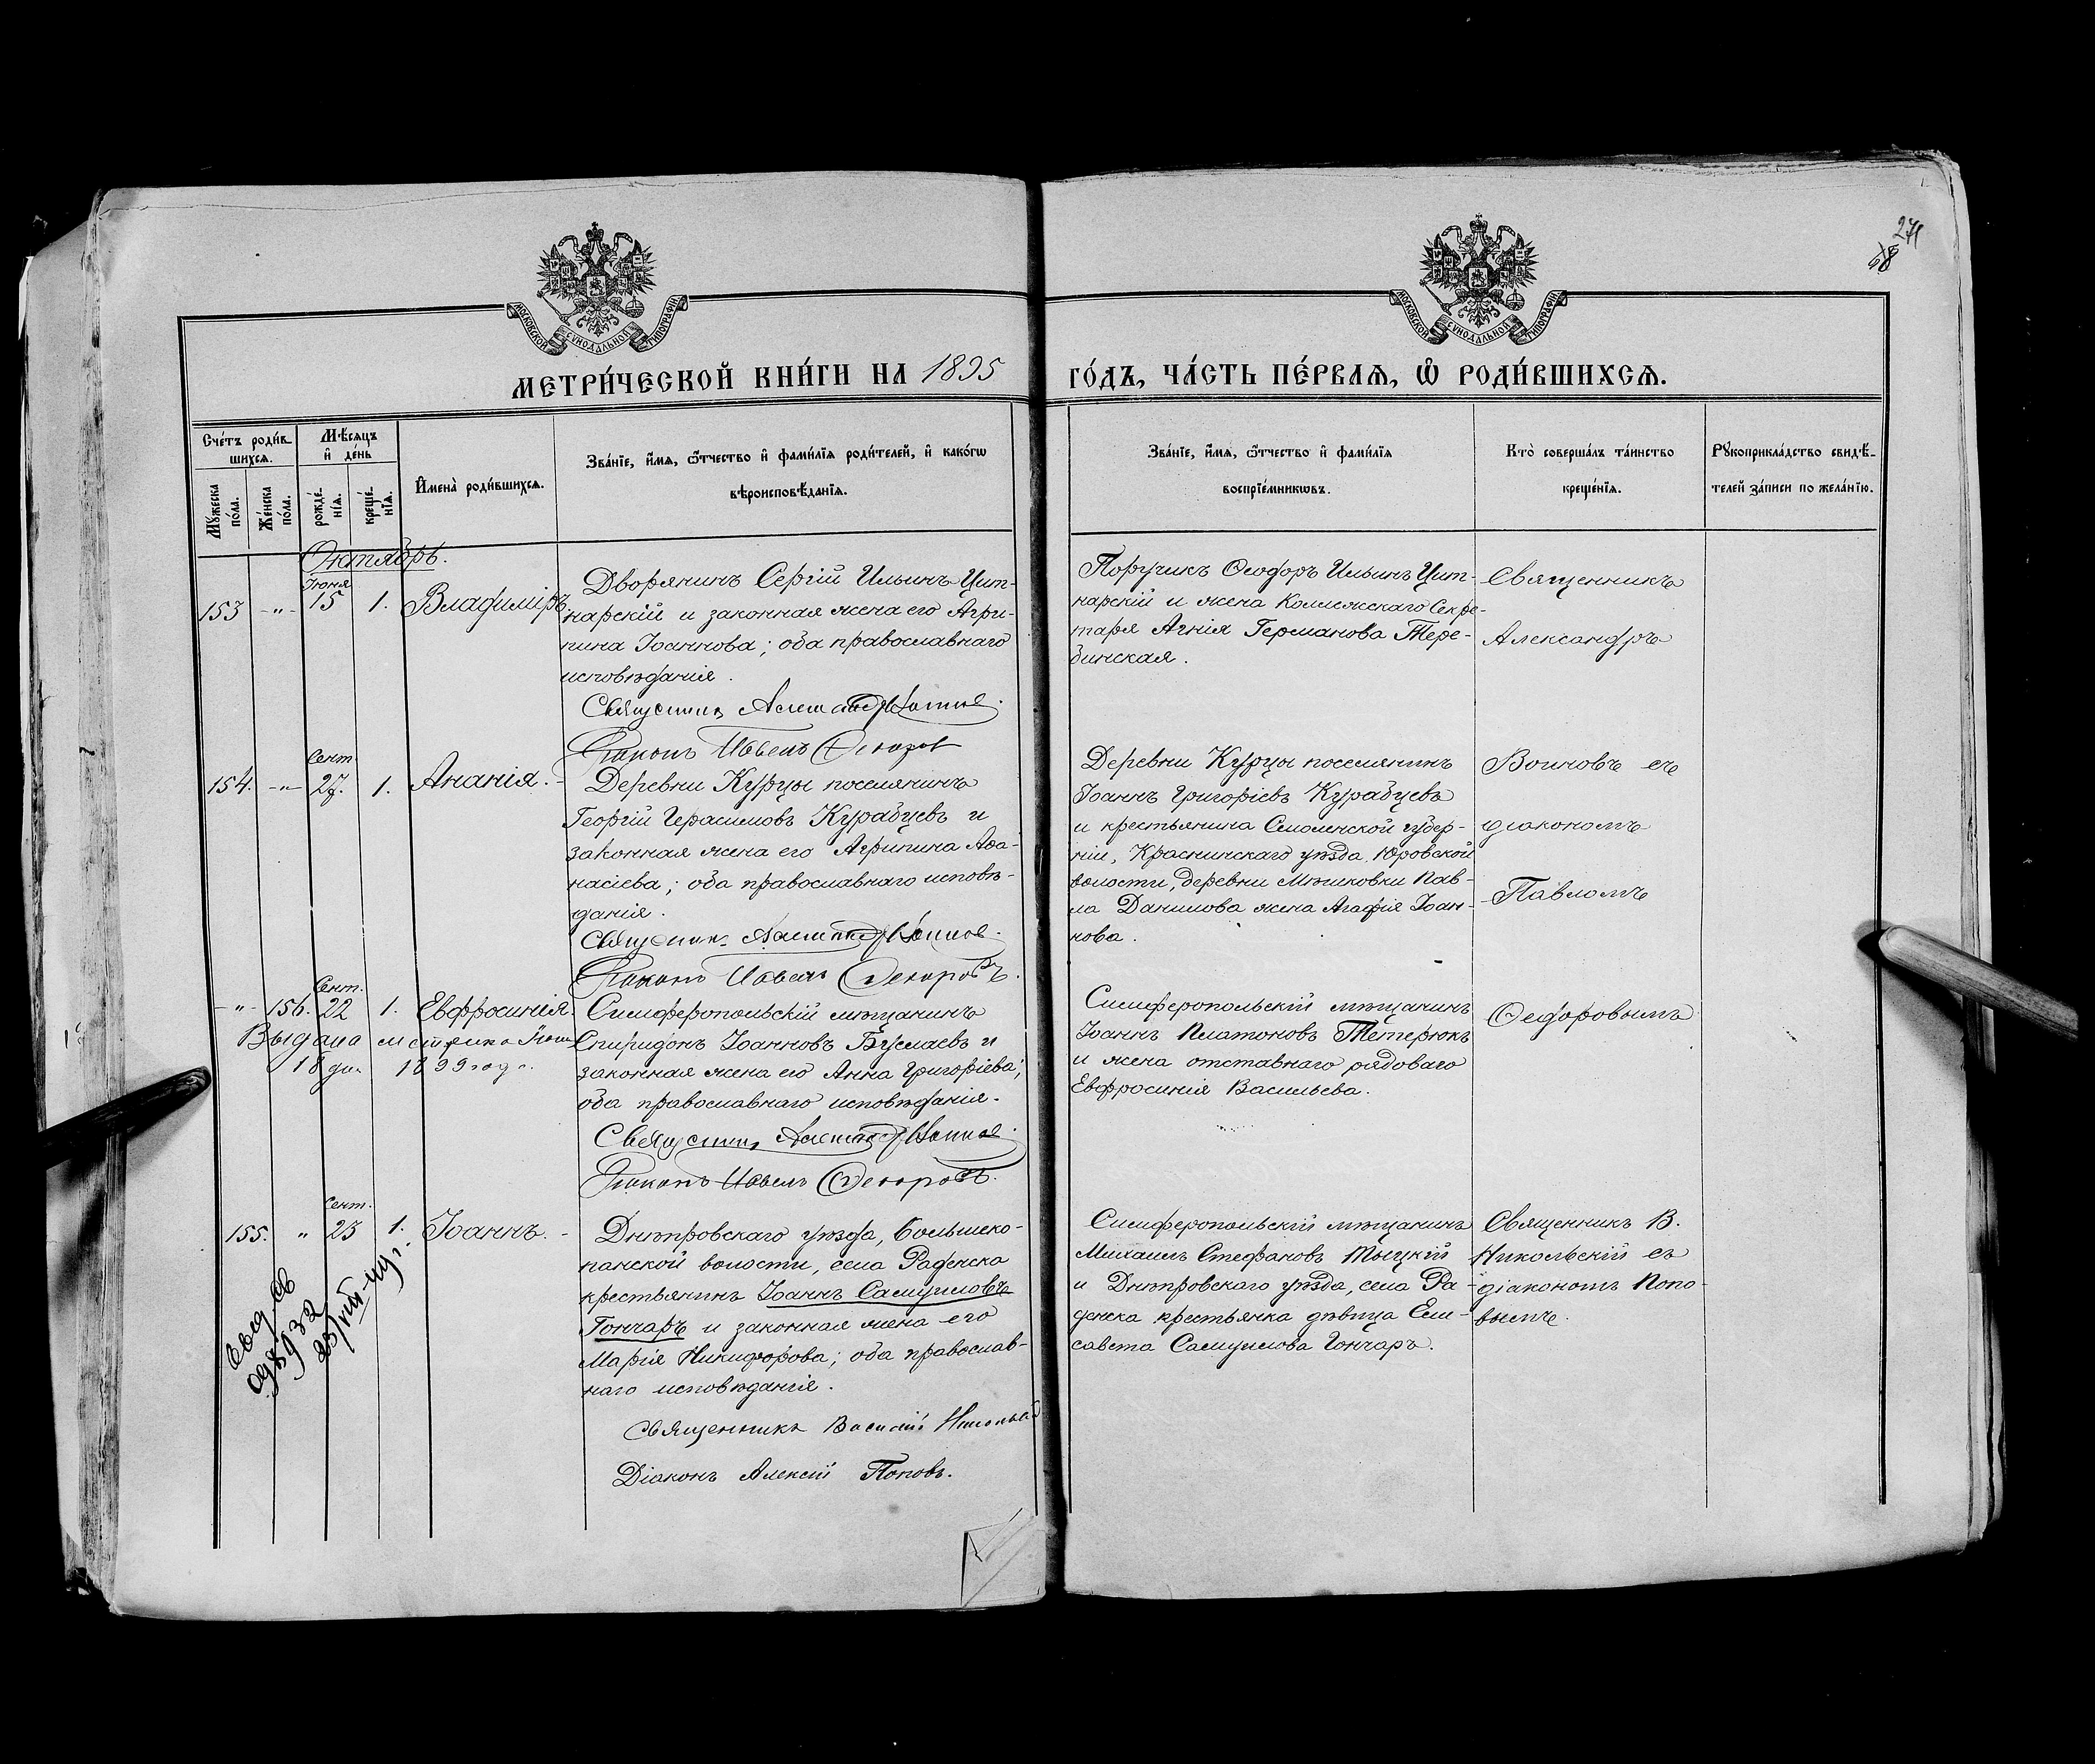 271
МОСКОВСКОЙ СѴНОДАЛЬНОЙ ТИПОГРАФІИ
МОСКОВСКОЙ СѴНОДАЛЬНОЙ ТИПОГРАФІИ
МЕТРИ́ЧЕСКОЙ КНИ́ГИ НА 1895
ГО́ДЪ, ЧА́СТЬ ПЕ́РВАЯ, Ѽ РОДИ́ВШИХСЯ.
Сче́тъ роди́в-
шихся.
Мѣ́сяцъ
и҆ де́нь
Мꙋ́жеска
по́ла.
Же́нска
по́ла.
рожде́-
нїѧ.
креще́-
нїѧ.
И҆мена̀ роди́вшихся.
Зва́нїе, и҆́мѧ, ѻ҆́тчество и҆ фами́лїѧ роди́телей, и҆ како́гѡ
вѣроисповѣ́данїѧ.
Зва́нїе, и҆́мѧ, ѻ҆́тчество и҆ фами́лїѧ
воспрїе́мникѡвъ.
Кто̀ соверша́лъ та́инство
креще́нїѧ.
Рꙋкоприкла́дство свидѣ́-
телей за́писи по жела́нїю.
Октябрь.
Іюня
153 -"- 15 1. Владиміръ
Дворянинъ Сергій Ильинъ Цит-
нарскій и законная жена его Агри-
пина Іоаннова; оба православнаго
исповѣданія.
Священникъ Александръ Воиновъ.
Діаконъ Павелъ Ѳедоровъ
Поручикъ Ѳеодоръ Ильинъ Цит-
нарскій и жена Коллежскаго Секре-
таря Агнія Германова Тере-
бинская.
Священникъ
Александръ
Сент.
154. -"- 27. 1. Ананія.
Деревни Курцы поселянинъ
Георгій Герасимовъ Курабцевъ и
законная жена его Агрипина Аѳа-
насіева; оба православнаго исповѣ-
данія.
Священникъ Александръ Воиновъ.
Діаконъ Павелъ Ѳедоровъ.
Деревни Курцы поселянинъ
Іоаннъ Григоріевъ Курабцевъ
и крестьянина Смоленской губер-
ніи, Краснинскаго уѣзда, Юровской
волости, деревни Мѣшковки Пав-
ла Данилова жена Агафія Іоан-
нова.
Воиновъ съ
діакономъ
Павломъ
Сент.
-"- 156. 22 1. Евфросинія.
Выдана метрика Іюня
18 дн. 1899 года.
Симферопольскій мѣщанинъ
Спиридонъ Іоанновъ Буслаевъ и
законная жена его Анна Григоріева;
оба православнаго исповѣданія.
Священникъ Александръ Воиновъ.
Діаконъ Павелъ Ѳедоровъ.
Симферопольскій мѣщанинъ
Іоаннъ Платоновъ Тетерюкъ
и жена отставнаго рядоваго
Евфросинія Васильева.
Ѳедоровымъ
Сент.
155. " 23 1. Іоаннъ.
Днѣпровскаго уѣзда, Большеко-
панской волости, села Раденска
крестьянинъ Іоаннъ Самуиловъ
Гончаръ и законная жена его
Марія Никифорова; оба православ-
наго исповѣданія.
Священникъ Василій Никольскій
Діаконъ Алексій Поповъ.
Симферопольскій мѣщанинъ
Михаилъ Стефановъ Тыцкій
и Днѣпровскаго уѣзда, села Ра-
денска крестьянка дѣвица Ели-
савета Самуилова Гончаръ.
Священникъ В.
Никольскій съ
діакономъ Попо-
вымъ.